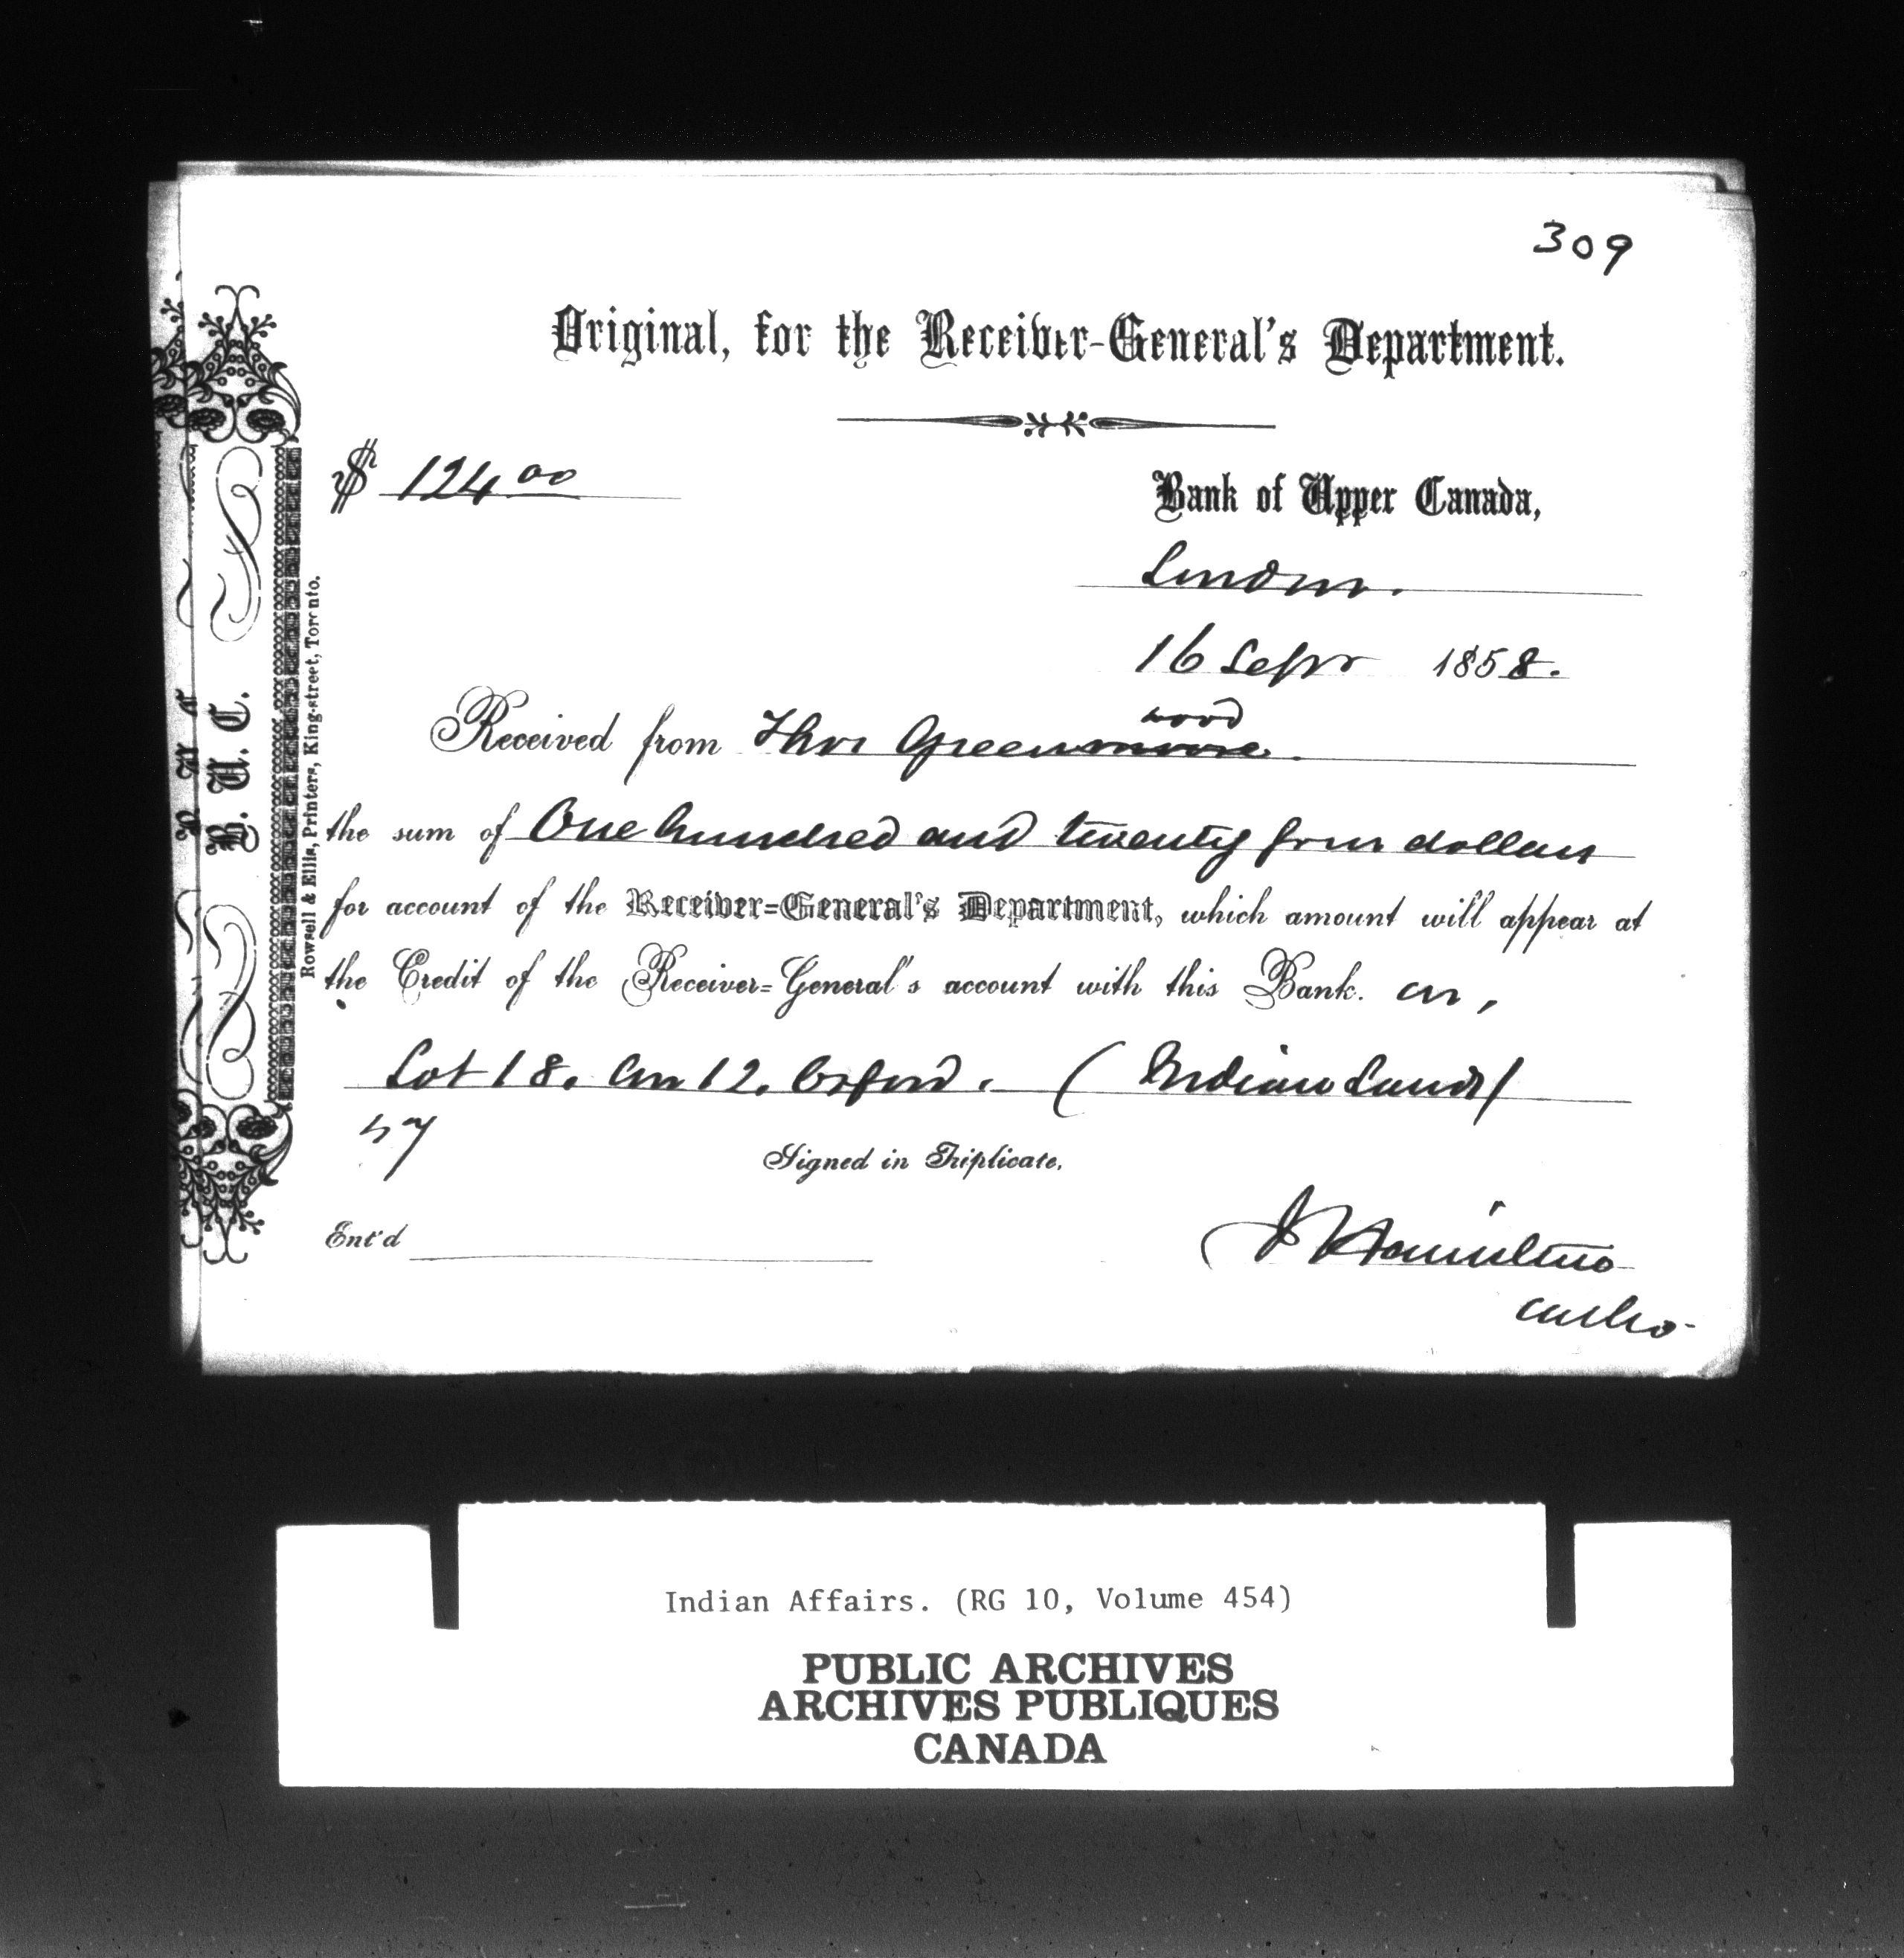 309
Original, for the Receiver-General's Department.
$ 124 00
Bank of Upper Canada,
London.
16 Sepr 1858.
wood
Received from Thos Greenmore.
the sum of One hundred and twenty four dollars
for account of the Receiver=General's Department, which amount will appear at
the Credit of the Receiver=General's account with this Bank. on,
Lot 18. Con 12. Orford. (Indian Lands)
57
Signed in Triplicate.
Ent'd
J Hamilton
B. U. C.
Rowsell & Ellis, Printers, King-street, Toronto.
Indian Affairs. (RG 10, Volume 454)
PUBLIC ARCHIVES
ARCHIVES PUBLIQUES
CANADA